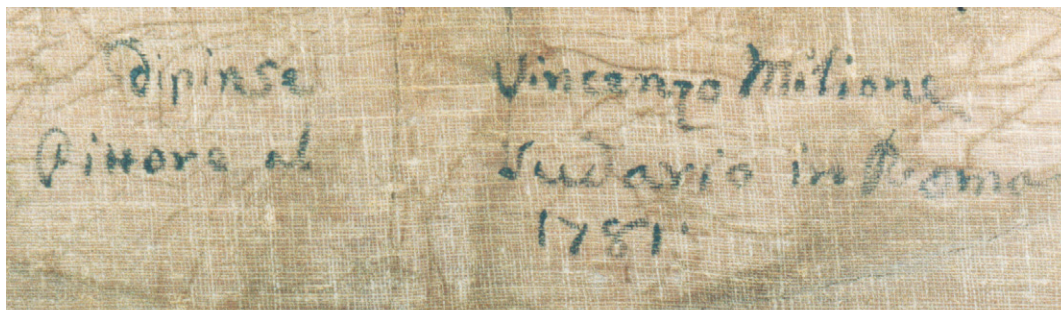 dipinse Vincenzo Milione
Pittore al Sudario in Roma
1781.